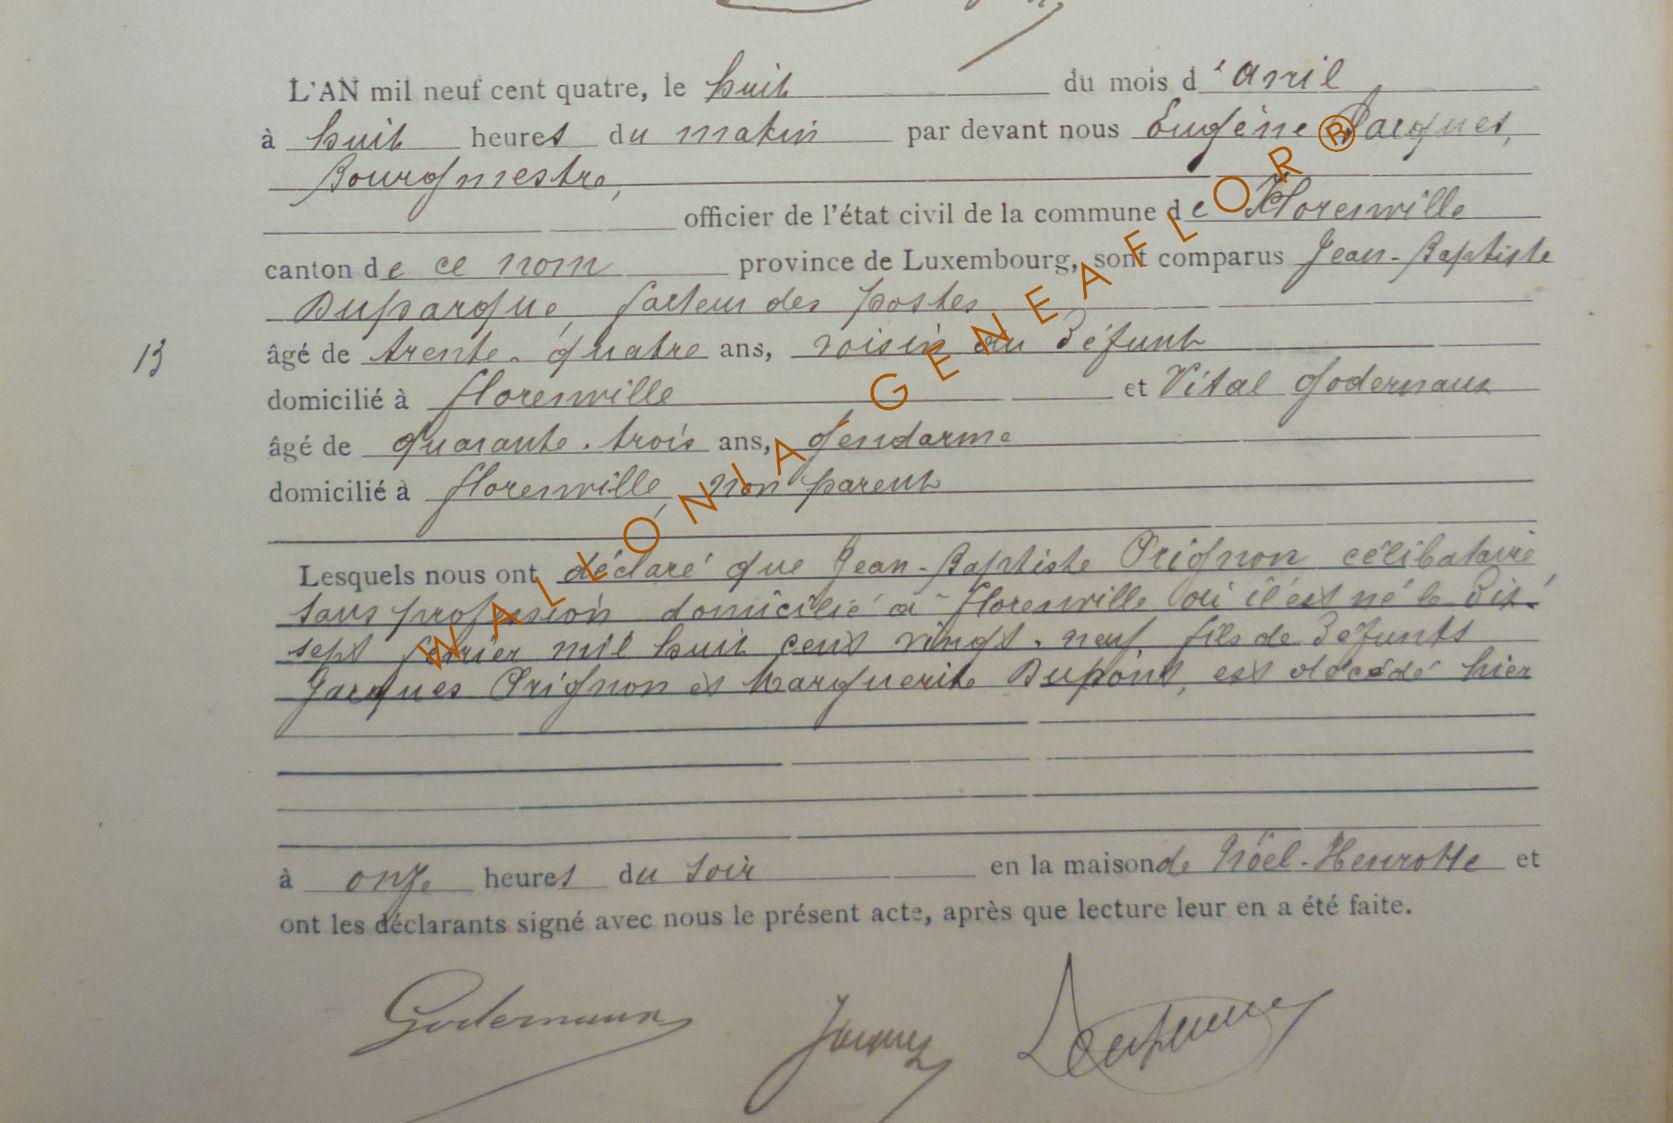 L'AN mil neuf cent quatre, le huit du mois d'avril
à huit heures du matin par devant nous Eugène Jacques,
Bourgmestre,
officier de l'état civil de la commune de Florenville
canton de ce nom province de Luxembourg, sont comparus Jean-Baptiste
Duparque, facteur des postes
13 âgé de trente-quatre ans, voisin du défunt
domicilié à Florenville et Vital Godernaux
âgé de quarante-trois ans, gendarme
domicilié à Florenville, non parent
Lesquels nous ont déclaré que Jean-Baptiste Orignon célibataire
sans profession domicilié à Florenville où il est né le dix-
sept février mil huit cent vingt-neuf, fils de défunts
Jacques Orignon et Marguerite Dupont, est décédé hier
à onze heures du soir en la maison de Noël-Henrotte et
ont les déclarants signé avec nous le présent acte, après que lecture leur en a été faite.
Godernaux Jacques
WALLONIA GENEAFLOR®